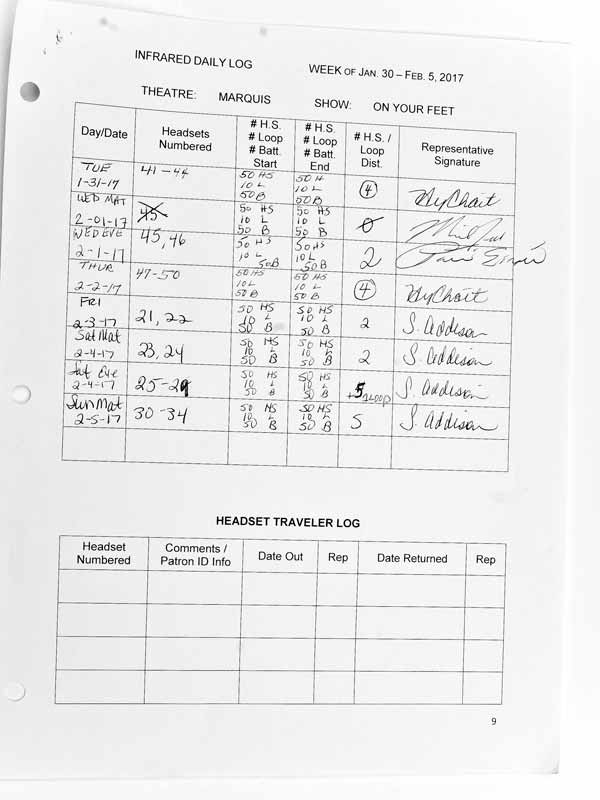 INFRARED DAILY LOG WEEK OF JAN. 30 – FEB. 5, 2017
THEATRE: MARQUIS SHOW: ON YOUR FEET
Day/Date Headsets Numbered # H.S. # Loop # Batt. Start # H.S. # Loop # Batt. End # H.S. / Loop Dist. Representative Signature
TUE 1-31-17 41-44 50 HS 10 L 50 B 50 H 10 L 50 B 4
WED MAT 2-01-17 45 50 HS 10 L 50 B 50 HS 10 L 50 B 0
WED EVE 2-1-17 45, 46 50 HS 10 L 50B 50 HS 10 L 50B 2
THUR 2-2-17 47-50 50 HS 10 L 50 B 50 HS 10 L 50 B 4
FRI 2-3-17 21, 22 50 HS 10 L 50 B 50 HS 10 L 50 B 2 S. Addison
Sat Mat 2-4-17 23, 24 50 HS 10 L 50 B 50 HS 10 L 50 B 2 S. Addison
Sat Eve 2-4-17 25-29 50 HS 10 L 50 B 50 HS 10 L 50 B 5 S. Addison
Sun Mat 2-5-17 30-34 50 HS 10 L 50 B 50 HS 10 L 50 B 5 S. Addison
HEADSET TRAVELER LOG
Headset Numbered Comments / Patron ID Info Date Out Rep Date Returned Rep
9